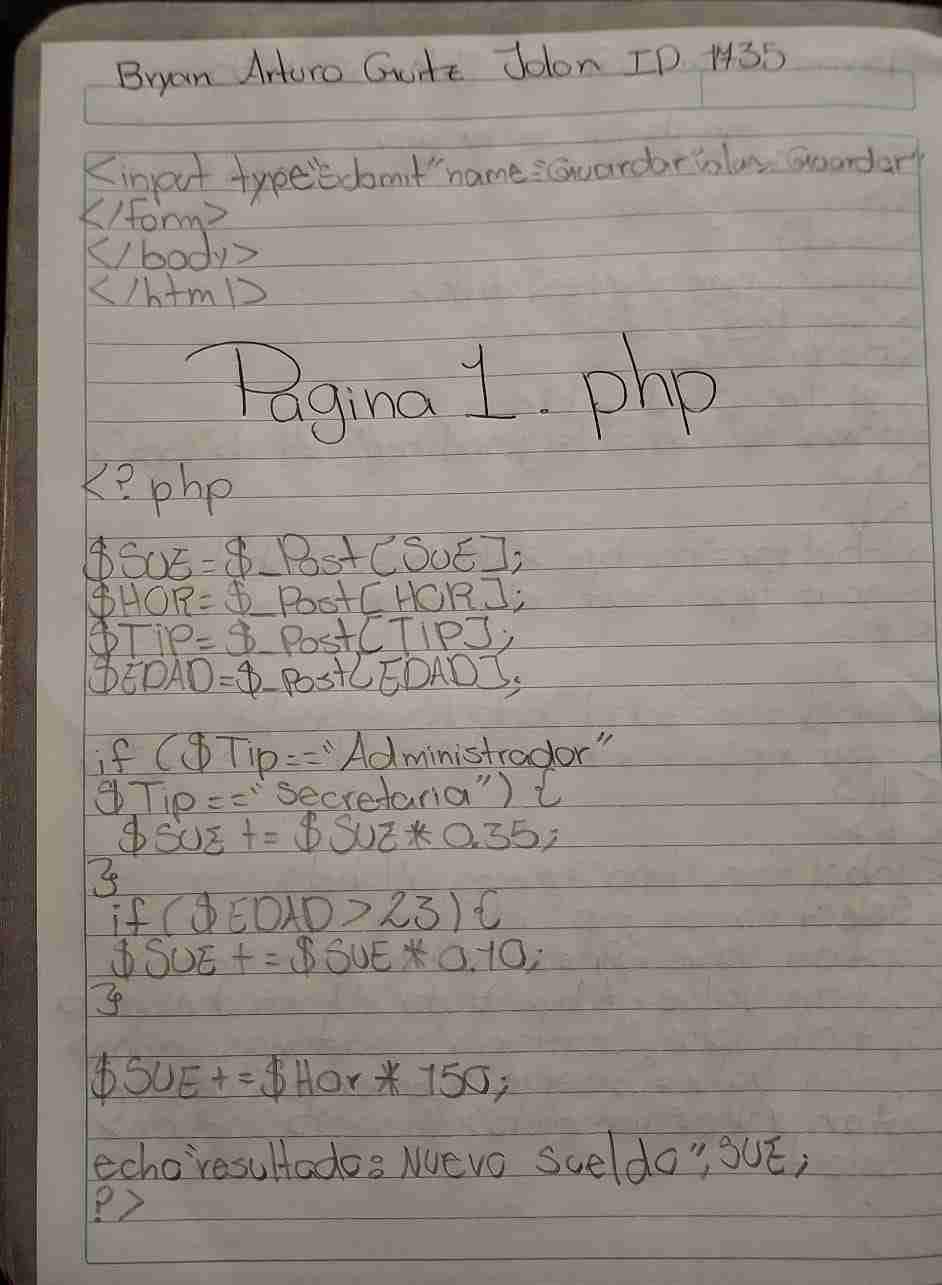 Bryan Arturo Guitz Jolon ID 1435
<input type"Submit" name="Guardar" Guardar"
</form>
</body>
</html>
Pagina 1. php
<? php
$SUE=$_Post[SUE];
$HOR=$_Post[HOR];
$TIP=$_Post[TIP];
$EDAD=$_Post[EDAD];
if ($Tip=="Administrador"
$Tip=="Secretaria") {
$SUE += $SUE * 0.35;
}
if ($EDAD > 23) {
$SUE += $SUE * 0.10;
}
$SUE += $Hor * 150;
echo"resultado: Nuevo Sueldo", SUE;
?>